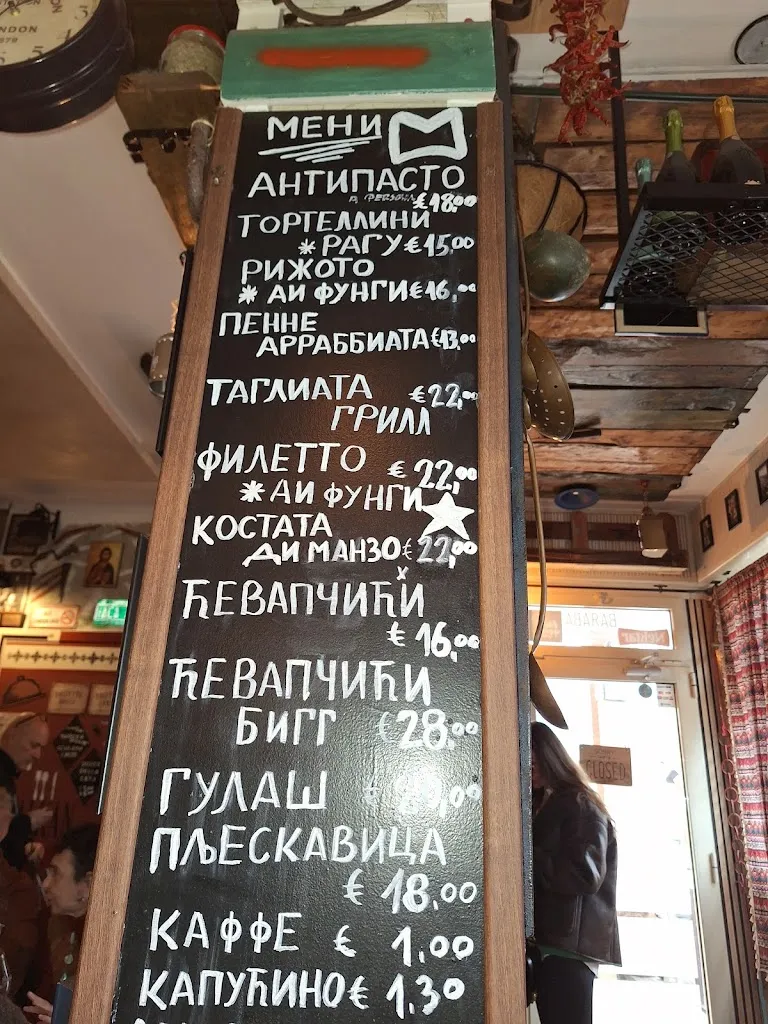 NDON
МЕНИ
АНТИПАСТО
P. PERSONA €18,00
ТОРТЕЛЛИНИ
* РАГУ €15,00
РИЖОТО
* АИ ФУНГИ €16,00
ПЕННЕ
АРРАББИАТА €13,00
ТАГЛИАТА €22,00
ГРИЛЛ
ФИЛЕТТО € 22,00
* АИ ФУНГИ
КОСТАТА
ДИ МАНЗО € 22,00
ЋЕВАПЧИЋИ
€ 16,00
ЋЕВАПЧИЋИ
БИГГ €28,00
ГУЛАШ
ПЉЕСКАВИЦА
€ 18,00
КАФФЕ € 1,00
КАПУЋИНО € 1,30
BARABA
Nektar
CLOSED